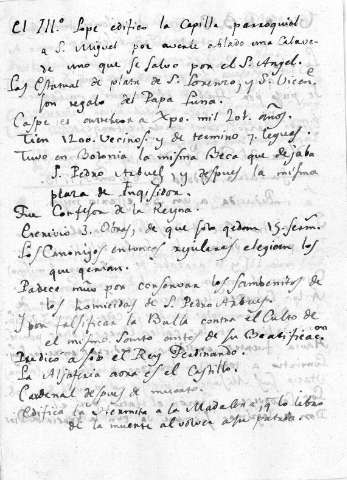 El Ill.º Lope edifico la Capilla parroquial
a S. Miguel por averle hablado una Calave-
de uno que se salvo por el S. Angel.
Las Estatuas de plata de S. Lorenzo, y S. Vicen.e
son regalo del Papa Luna.
Caspe es
Tien 1200. Vecinos y de termino 7. leguas.
Tuvo en Bolonia la misma Beca que dejaba
S. Pedro Arbues, y despues la misma
plaza de Inqisidor.
Fue Confesor de la Reyna.
Escrivio 3. Obras, de que solo qedan 15. serm.
Los Canonigos entonces reglares elegian los
que qerian.
Padece mũo por conservar los sambenitos de
los homicidas de S. Pedro Arbues.
I por falsificar la Bulla contra el Culto de
el mismo Santo antes de su Beatificac.on
Predicó a solo el Rey Ferdinando.
La Aljaferia aora es el Castillo.
Cardenal despues de muerto.
Edifica la Hermita a la Madalena, q lo librò
de la muerte al volver a su patria.